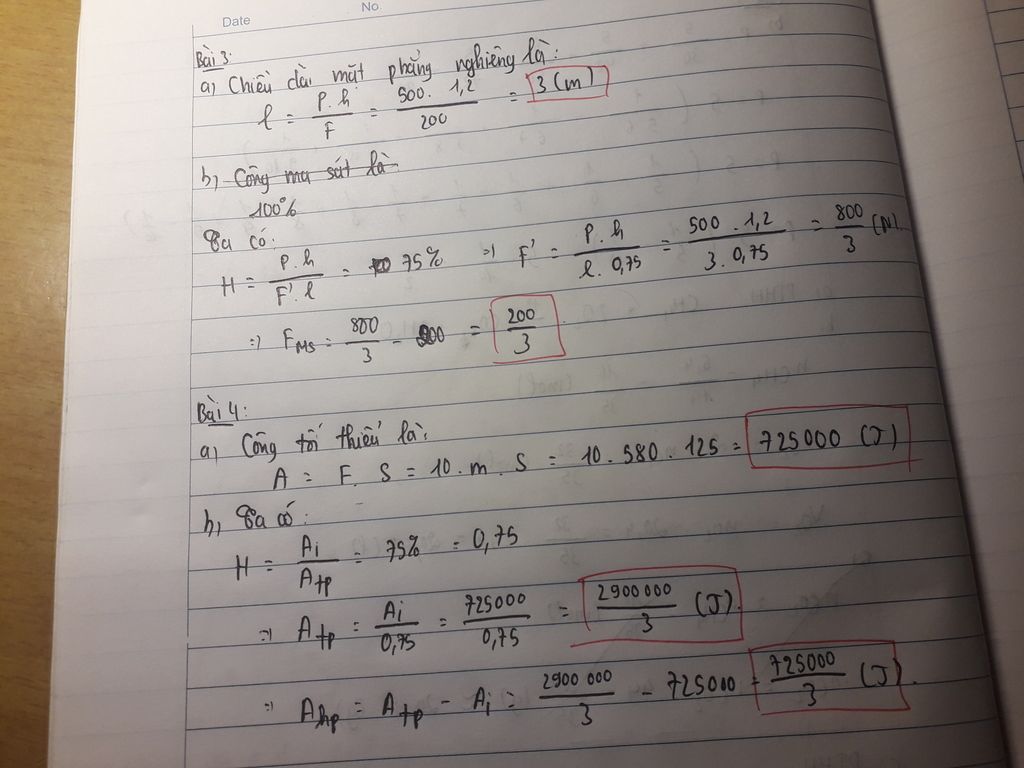 Date No
Bài 3:
a, Chiều dài mặt phẳng nghiêng là:
l = P.h / F = 500. 1,2 / 200 = 3 (m)
b, Công ma sát là
100%
Ta có:
H = P.h / F'.l = 75% => F' = P.h / l. 0,75 = 500 . 1,2 / 3. 0,75 = 800 / 3 (N)
=> FMS = 800 / 3 - 200 = 200 / 3
Bài 4:
a, Công tối thiểu là:
A = F. S = 10. m. S = 10. 580. 125 = 725000 (J)
b, Ta có:
H = Ai / Atp = 75% = 0,75
=> Atp = Ai / 0,75 = 725000 / 0,75 = 2900 000 / 3 (J).
=> Ahp = Atp - Ai = 2900 000 / 3 - 725000 = 725000 / 3 (J).